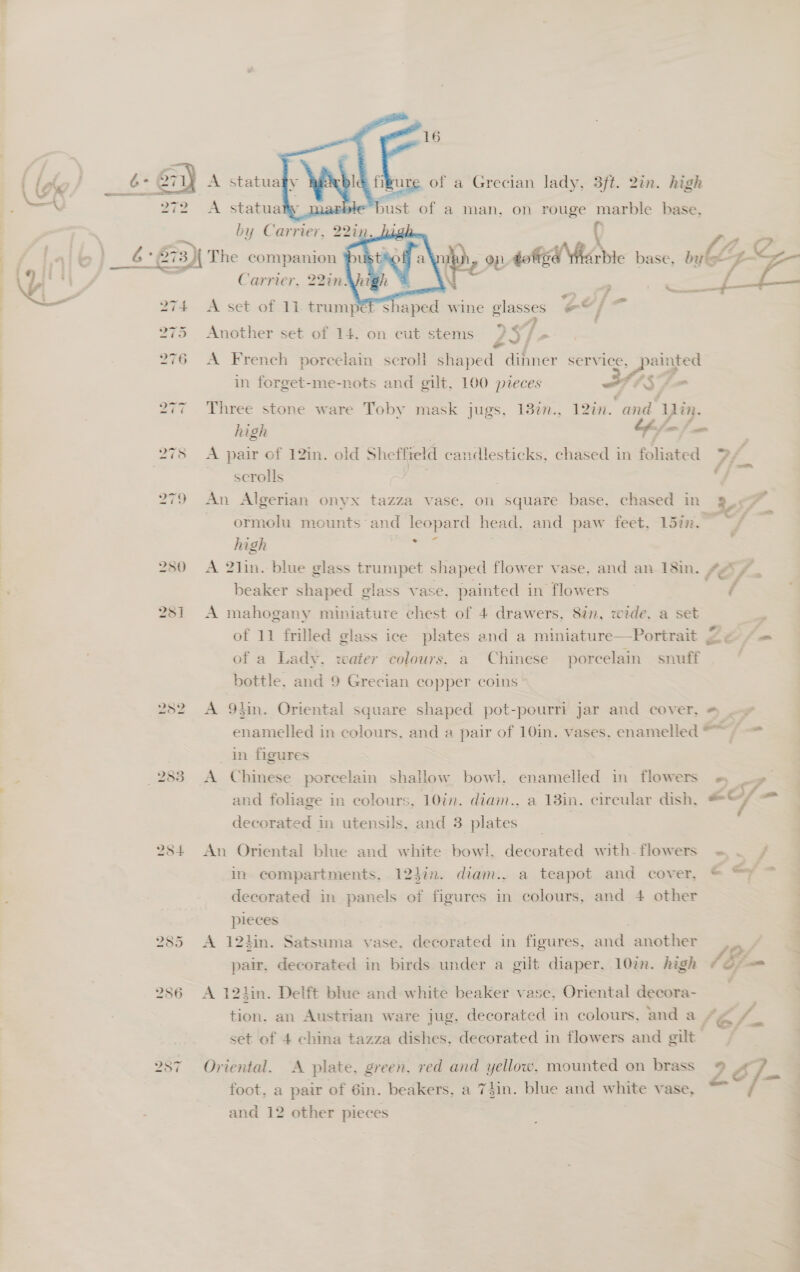 16
271 A statuary marble figure of a Grecian lady, 3ft. 2in. high
272 A statuary marble bust of a man, on rouge marble base,
by Carrier, 22in. high
273 The companion bust of a nymph, on rouge marble base, by
Carrier, 22in. high
274 A set of 11 trumpet shaped wine glasses
275 Another set of 14, on cut stems 25/-
276 A French porcelain scroll shaped dinner service, painted
in forget-me-nots and gilt, 100 pieces
277 Three stone ware Toby mask jugs, 13in., 12in. and 11in.
high
278 A pair of 12in. old Sheffield candlesticks, chased in foliated
scrolls
279 An Algerian onyx tazza vase, on square base, chased in
ormolu mounts and leopard head, and paw feet, 15in.
high
280 A 21in. blue glass trumpet shaped flower vase, and an 18in.
beaker shaped glass vase, painted in flowers
281 A mahogany miniature chest of 4 drawers, 8in. wide, a set
of 11 frilled glass ice plates and a miniature—Portrait
of a Lady, water colours, a Chinese porcelain snuff
bottle, and 9 Grecian copper coins
282 A 9½in. Oriental square shaped pot-pourri jar and cover,
enamelled in colours, and a pair of 10in. vases, enamelled
in figures
283 A Chinese porcelain shallow bowl, enamelled in flowers
and foliage in colours, 10in. diam., a 13in. circular dish,
decorated in utensils, and 3 plates
284 An Oriental blue and white bowl, decorated with flowers
in compartments, 12½in. diam., a teapot and cover,
decorated in panels of figures in colours, and 4 other
pieces
285 A 12½in. Satsuma vase, decorated in figures, and another
pair, decorated in birds under a gilt diaper, 10in. high
286 A 12½in. Delft blue and white beaker vase, Oriental decora-
tion, an Austrian ware jug, decorated in colours, and a
set of 4 china tazza dishes, decorated in flowers and gilt
287 Oriental. A plate, green, red and yellow, mounted on brass
foot, a pair of 6in. beakers, a 7½in. blue and white vase,
and 12 other pieces